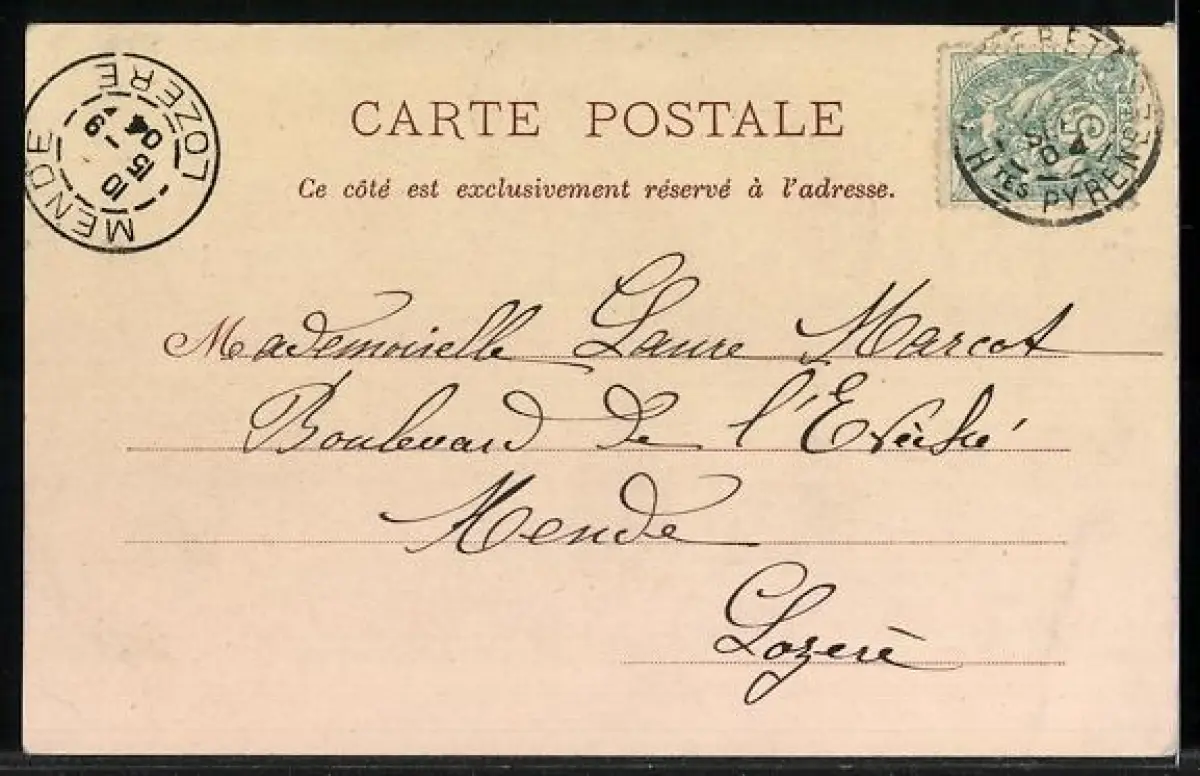 CARTE POSTALE
Ce côté est exclusivement réservé à l'adresse.
MENDE
LOZERE
15 -9
04
Htes PYRENEES
04
5
Mademoiselle Laure Marcot
Boulevard de l'Evêché
Mende
Lozère